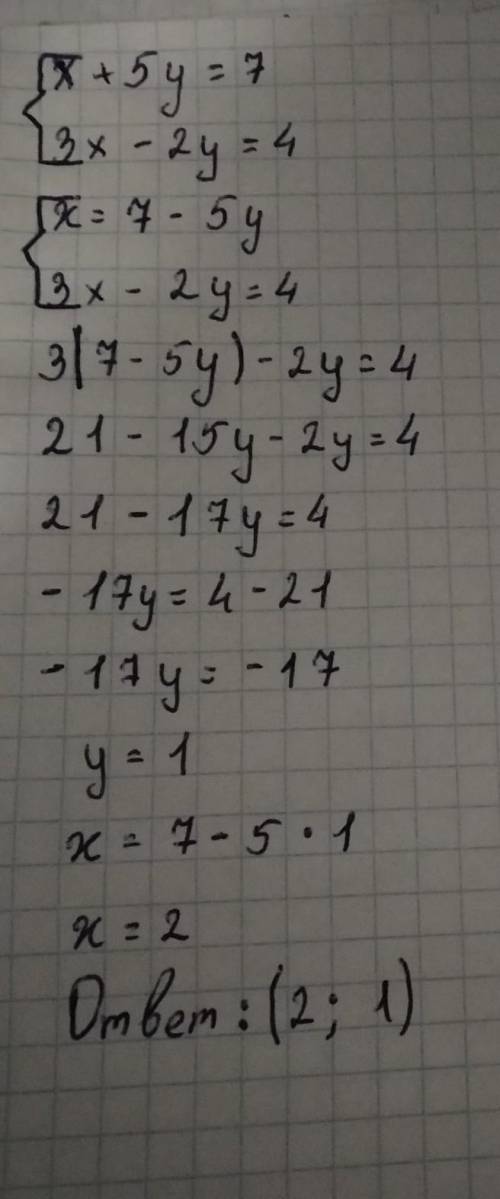 x + 5y = 7
3x - 2y = 4
x = 7 - 5y
3x - 2y = 4
3(7 - 5y) - 2y = 4
21 - 15y - 2y = 4
21 - 17y = 4
- 17y = 4 - 21
- 17y = - 17
y = 1
x = 7 - 5 · 1
x = 2
Ответ: (2; 1)